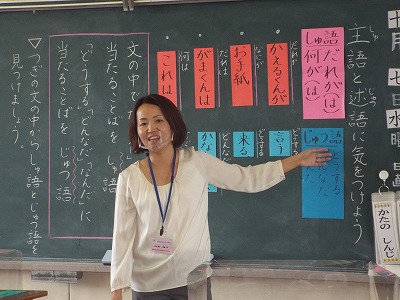 十月七日水
主語と述語に気をつけよう
しゅ語
だれが(は)
何が(は)
じゅつ語
だれが
かえるくんが
どうする
言う
なにが
お手紙
どうする
来る
だれは
がまくんは
どんな
かな
何は
これは
文の中で
当たることばを しゅ語
「どうする」「どんなだ」「なんだ」に
当たることばを じゅつ語
▽つぎの文の中からしゅ語とじゅつ語を
見つけましょう。
かたの しんじ